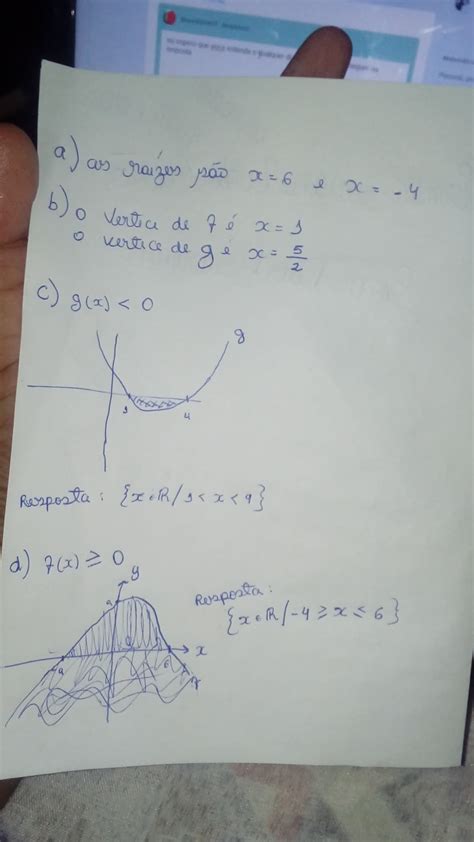 a) as raízes são x=6 e x= -4
b) o vertice de f é x=1
o vertice de g é x= 5/2
c) g(x) < 0
g
1 4
Resposta: {x∈R/ 1<x<4}
d) f(x) ≥ 0
y
x
6
Resposta:
{x∈R/-4 ≥ x ≤ 6}